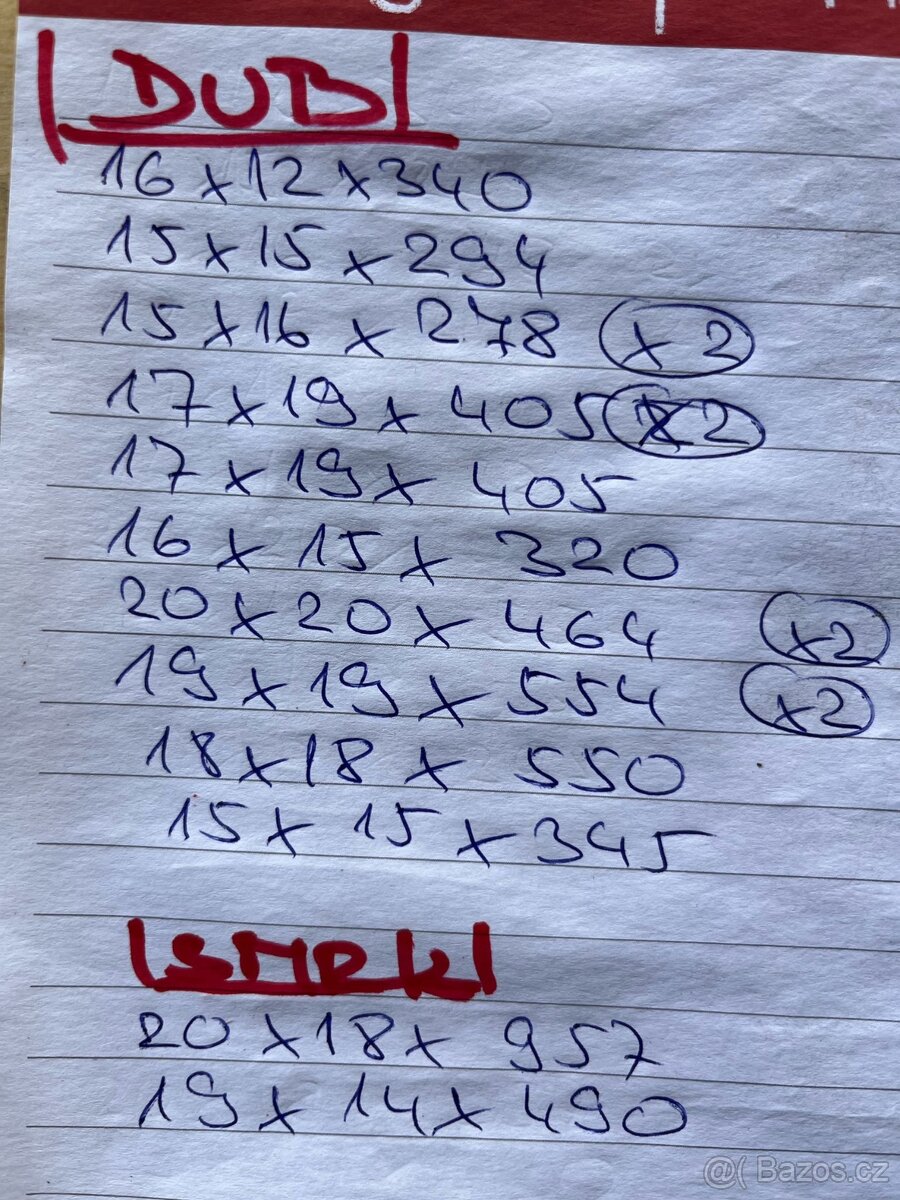 DUB
16 x 12 x 340
15 x 15 x 294
15 x 16 x 278 x 2
17 x 19 x 405 x 2
17 x 19 x 405
16 x 15 x 320
20 x 20 x 464 x2
19 x 19 x 554 x2
18 x 18 x 550
15 x 15 x 345
SMRK
20 x 18 x 957
19 x 14 x 490
@( Bazos.cz